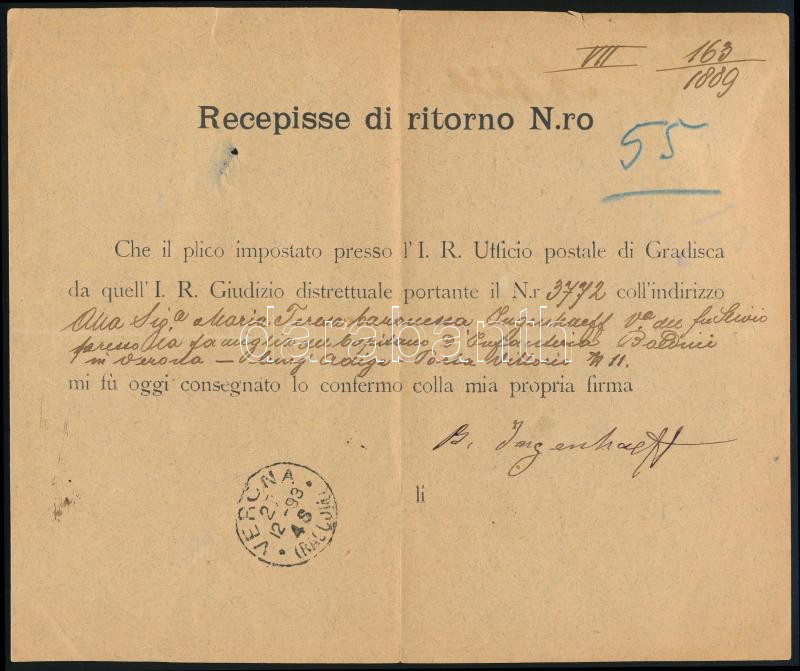 VII 163
1889
Recepisse di ritorno N.ro
55
Che il plico impostato presso l'I. R. Ufficio postale di Gradisca
da quell'I. R. Giudizio distrettuale portante il N.r 3772 coll'indirizzo
Alla Sigª Maria Teresa baronessa Ingenhaeff Vª del fu Livio
presso la famiglia del Capitano d'Infanteria
in Verona – Lungadige Porta Vittoria N 11.
darabanth.com
mi fù oggi consegnato lo confermo colla mia propria firma
B. Ingenhaeff
li
VERONA
12-93
4 S